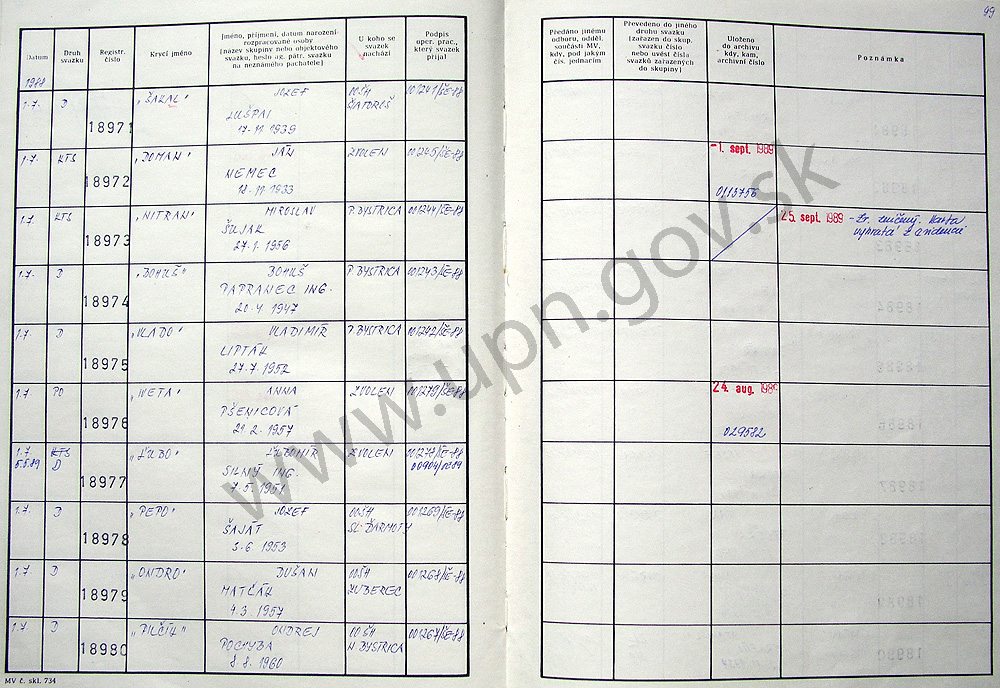 99
Datum
Druh svazku
Registr. číslo
Krycí jméno
Jméno, příjmení, datum narození
rozpracované osoby
(název skupiny nebo objektového
svazku, heslo ag. pátr. svazku
na neznámého pachatele)
U koho se
svazek
nachází
Podpis
oper. prac.,
který svazek
přijal
Předáno jinému
odboru, odděl.,
součásti MV,
kdy, pod jakým
čís. jednacím
Převedeno do jiného
druhu svazku
(zařazen do skup.
svazku číslo
nebo uvést čísla
svazků zařazených
do skupiny)
Uloženo
do archivu
kdy, kam,
archivní číslo
Poznámka
1988
1.7. D 18971 "ŠAKAL" JOZEF
LUŠPAI
17.11.1939
OOŠH
ŠIATOROŠ
001241/ŠE-88
1.7. KTS 18972 "DOMAN" JÁN
NEMEC
18.11.1933
ZVOLEN
001245/ŠE-88
-1. sept. 1989
0113756
1.7 KTS 18973 "NITRAN" MIROSLAV
ŠUJAK
27.1.1956
P. BYSTRICA
001244/ŠE-88
25. sept. 1989 - Zv. zničený. Karta
vyňatá z evidencie
1.7. D 18974 "BOHUŠ" BOHUŠ
PAPRANEC ING.
20.4.1947
P. BYSTRICA
001243/ŠE-88
1.7. D 18975 "VLADO" VLADIMÍR
LIPTÁK
27.7.1952
P. BYSTRICA
001242/ŠE-88
1.7 PO 18976 "IVETA" ANNA
PŠENICOVÁ
21.2.1957
ZVOLEN
001279/ŠE-88
24. aug. 1989
029582
1.7.
5.5.89
KTS
D
18977 "ĽUBO" ĽUBOMIR
SILNÝ ING.
7.5.1951
ZVOLEN
001278/ŠE-88
1.7. D 18978 "PEPO" JOZEF
ŠAJÁT
3.6.1953
OOŠH
SL. ĎARMOTY
001269/ŠE-88
1.7 D 18979 "ONDRO" DUŠAN
MATČÁK
4.3.1957
OOŠH
ZUBEREC
001268/ŠE-88
1.7. D 18980 "PILČÍK" ONDREJ
POCHYBA
8.8.1960
OOŠH
N BYSTRICA
001267/ŠE-88
MV č. skl. 734
www.upn.gov.sk